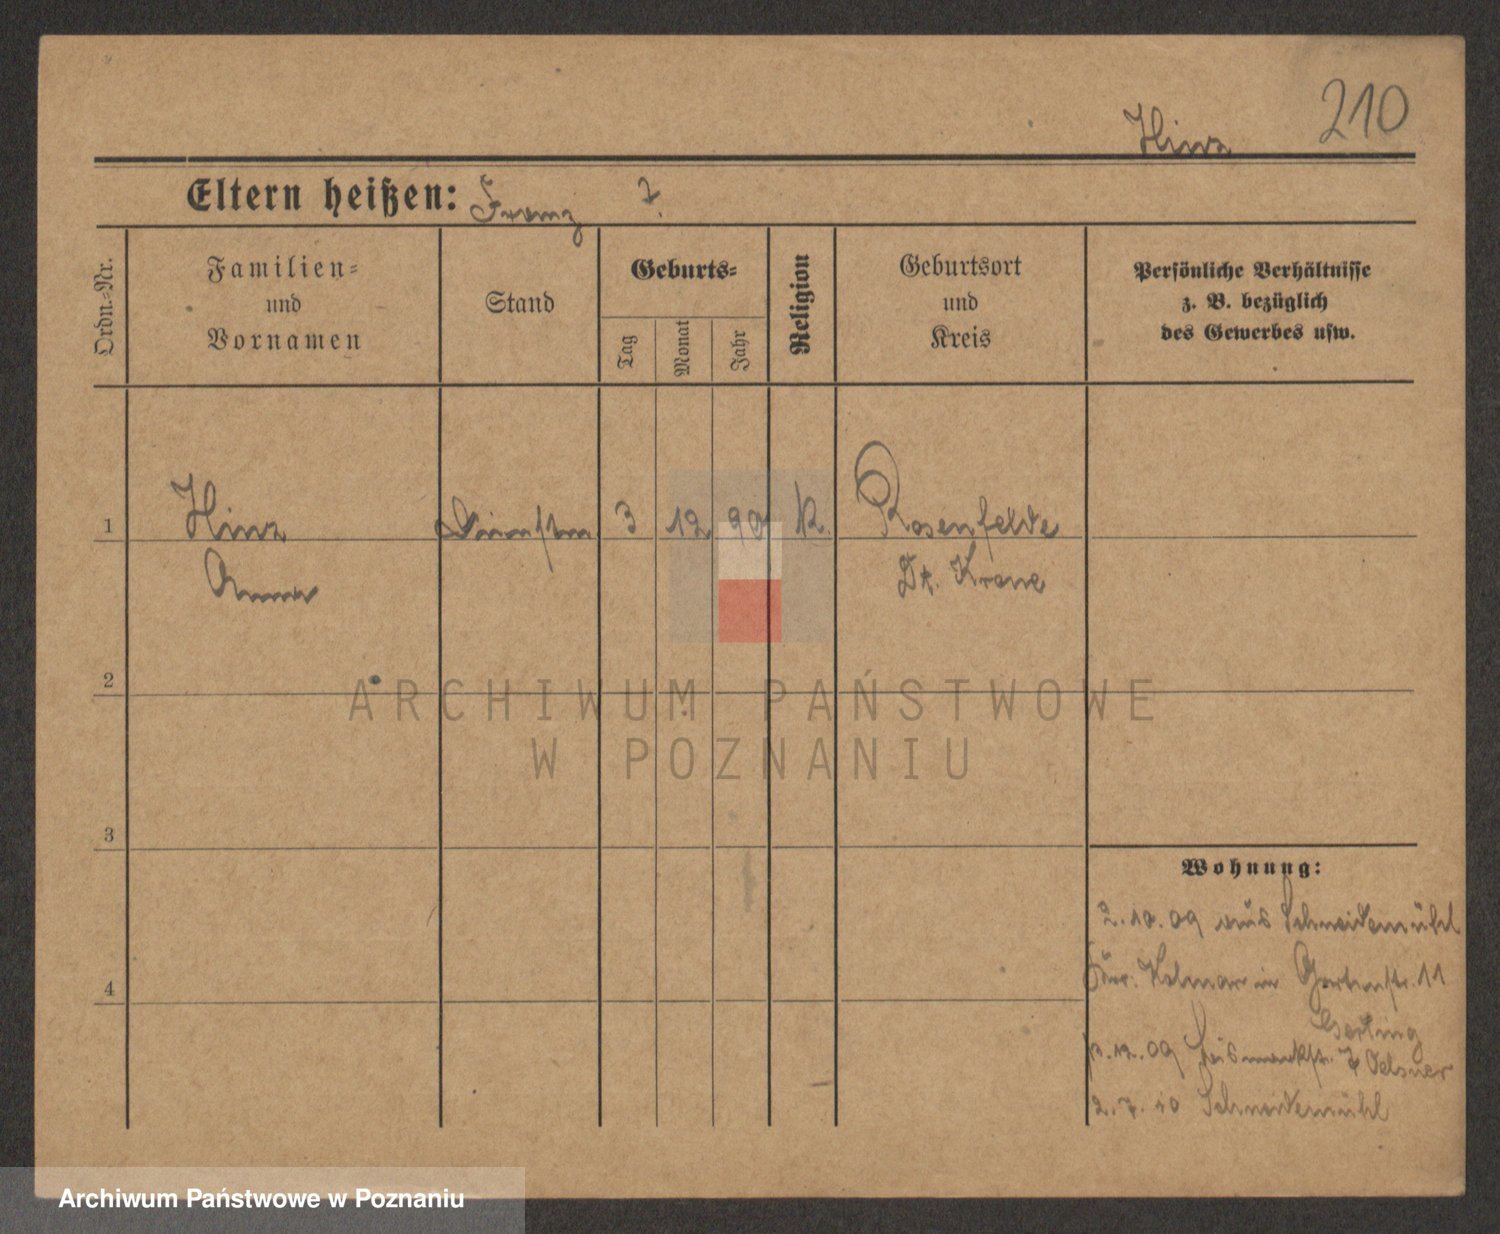 210
Hinz
Eltern heißen: Franz ?
Ordn.-Nr.
Familien-
und
Vornamen
Stand
Geburts-
Tag
Monat
Jahr
Religion
Geburtsort
und
Kreis
Persönliche Verhältnisse
z. B. bezüglich
des Gewerbes usw.
1 Hinz 3 12 90 K. Rosenfelde
Anna Dt. Krone
2
3
4
Wohnung:
2.10.09 aus Schneidemühl
Kolmar in Gartenstr. 11
Gerling
12.09 Bismarckstr. 7 Oelsner
2.7.10 Schneidemühl
ARCHIWUM PAŃSTWOWE
W POZNANIU
Archiwum Państwowe w Poznaniu